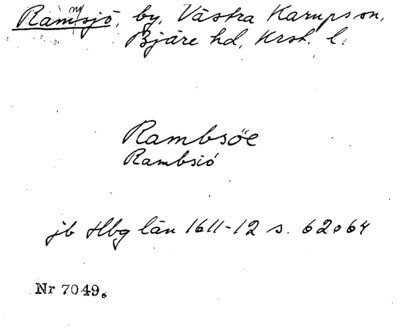 Ramsjö, by, Västra Karups sn,
Bjäre hd, Krst. l.
Rambsöe
Rambsiö
jb Hbg län 1611-12 s. 62 o 64
Nr 7049.